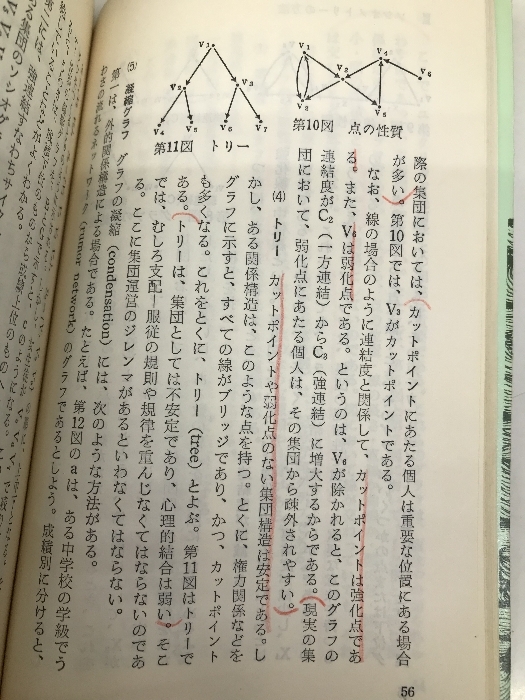 際の集団においては、カットポイントにあたる個人は重要な位置にある場合
が多い。第10図では、V₃がカットポイントである。
なお、線の場合のように連結度と関係して、カットポイントは強化点であ
る。また、V₆は弱化点である。というのは、V₆が除かれると、このグラフの
連結度がC₂（一方連結）からC₃（強連結）に増大するからである。現実の集
団において、弱化点にあたる個人は、その集団から疎外されやすい。
V₁
V₂
V₃
V₄
V₅
V₆
第10図 点の性質
(4) トリー カットポイントや弱化点のない集団構造は安定である。し
かし、ある関係構造は、このような点を持つ。とくに、権力関係などを
グラフに示すと、すべての線がブリッジであり、かつ、カットポイント
も多くなる。これをとくに、トリー（tree）とよぶ。第11図はトリーで
ある。トリーは、集団としては不安定であり、心理的結合は弱い。そこ
では、むしろ支配―服従の規則や規律を重んじなくてはならないのであ
る。ここに集団運営のジレンマがあるといわなくてはならない。
V₁
V₂
V₃
V₄
V₅
V₆
V₇
第11図 トリー
(5) 凝縮グラフ グラフの凝縮（condensation）には、次のような方法がある。
第一は、外的関係構造による場合である。たとえば、第12図のaは、ある中学校の学級でう
わさの流れるネットワーク（rumor network）のグラフであるとしよう。成績別に分けると、
56